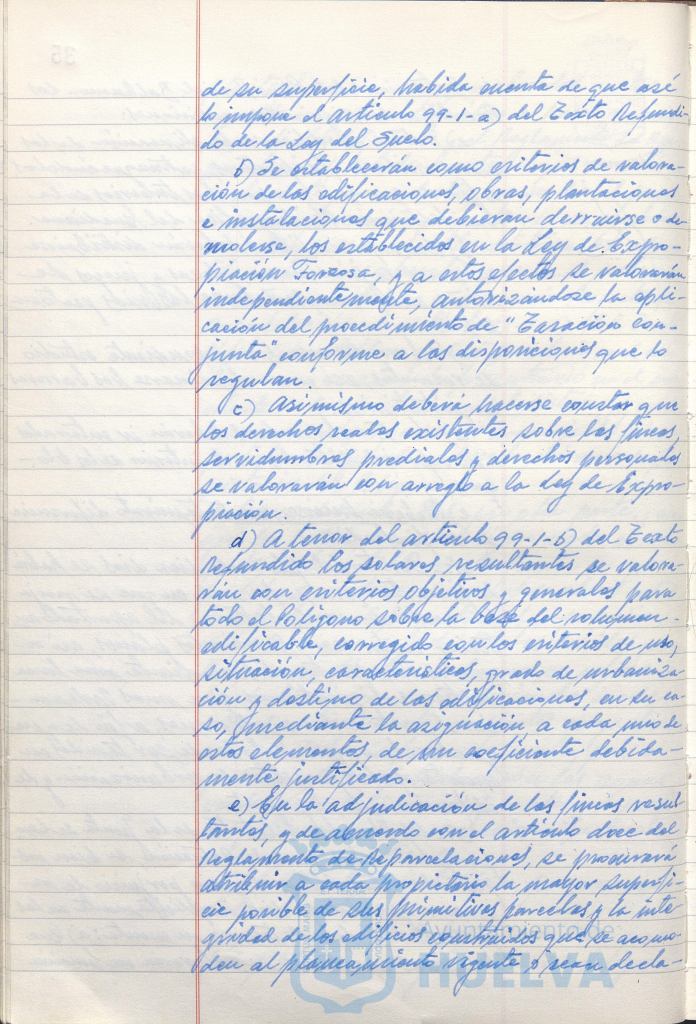 de su superficie, habida cuenta de que así
lo impone el artículo 99-1-a) del Texto Refundi-
do de la Ley del Suelo.
b) Se establecerán como criterios de valora-
ción de las edificaciones, obras, plantaciones
e instalaciones que debieran derruirse o de-
molerse, los establecidos en la Ley de Expro-
piación Forzosa, y a estos efectos se valorarán
independientemente, autorizándose la apli-
cación del procedimiento de "Tasación con-
junta" conforme a las disposiciones que lo
regulan.
c) Asimismo deberá hacerse constar que
los derechos reales existentes sobre las fincas,
servidumbres prediales y derechos personales
se valorarán con arreglo a la Ley de Expro-
piación.
d) A tenor del artículo 99-1-b) del Texto
Refundido los solares resultantes se valora-
rán con criterios objetivos y generales para
todo el Polígono sobre la base del volumen
edificable, corregido con los criterios de uso,
situación, características, grado de urbaniza-
ción y destino de las edificaciones, en su ca-
so, mediante la asignación, a cada uno de
estos elementos, de un coeficiente debida-
mente justificado.
e) En la adjudicación de las fincas resul-
tantes, y de acuerdo con el artículo doce del
Reglamento de Reparcelaciones, se procurará
atribuir a cada propietario la mayor superfi-
cie posible de sus primitivas parcelas y la inte-
gridad de los edificios construidos que se acomo-
den al planeamiento vigente o sean decla-
Ayuntamiento de
HUELVA